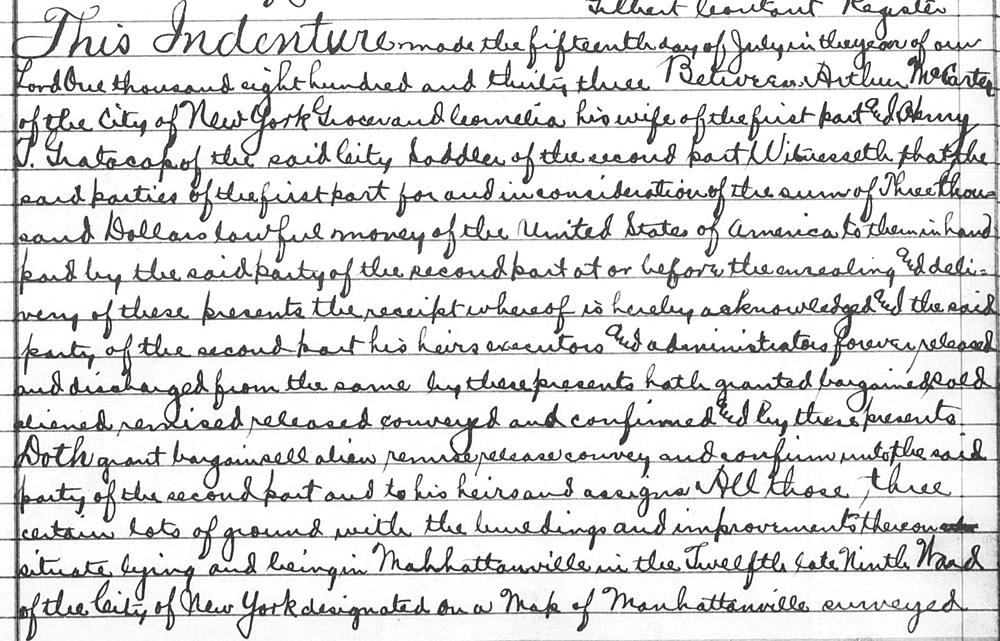 Gilbert Coutant Register
This Indenture made the fifteenth day of July, in the year of our
Lord One thousand eight hundred and thirty three Between Arthur McCarter
of the City of New York Grocer and Cornelia his wife of the first part and Henry
P. Gratacap of the said City Saddler of the second part Witnesseth that the
said parties of the first part for and in consideration of the sum of Three thou=
sand Dollars lawful money of the United States of America to them in hand
paid by the said party of the second part at or before the ensealing and deli=
very of these presents the receipt whereof is hereby acknowledged and the said
party of the second part his heirs executors and administrators forever, released
and discharged from the same by these presents hath granted bargained, sold
aliened, remised, released conveyed and confirmed and by these presents
Doth grant bargain sell alien, remise, release convey and confirm unto the said
party of the second part and to his heirs and assigns All those three
certain lots of ground with the buildings and improvements thereon
situate lying and being in Mahhattanville in the Twelfth late Ninth Ward
of the City of New York designated on a Map of Manhattanville surveyed